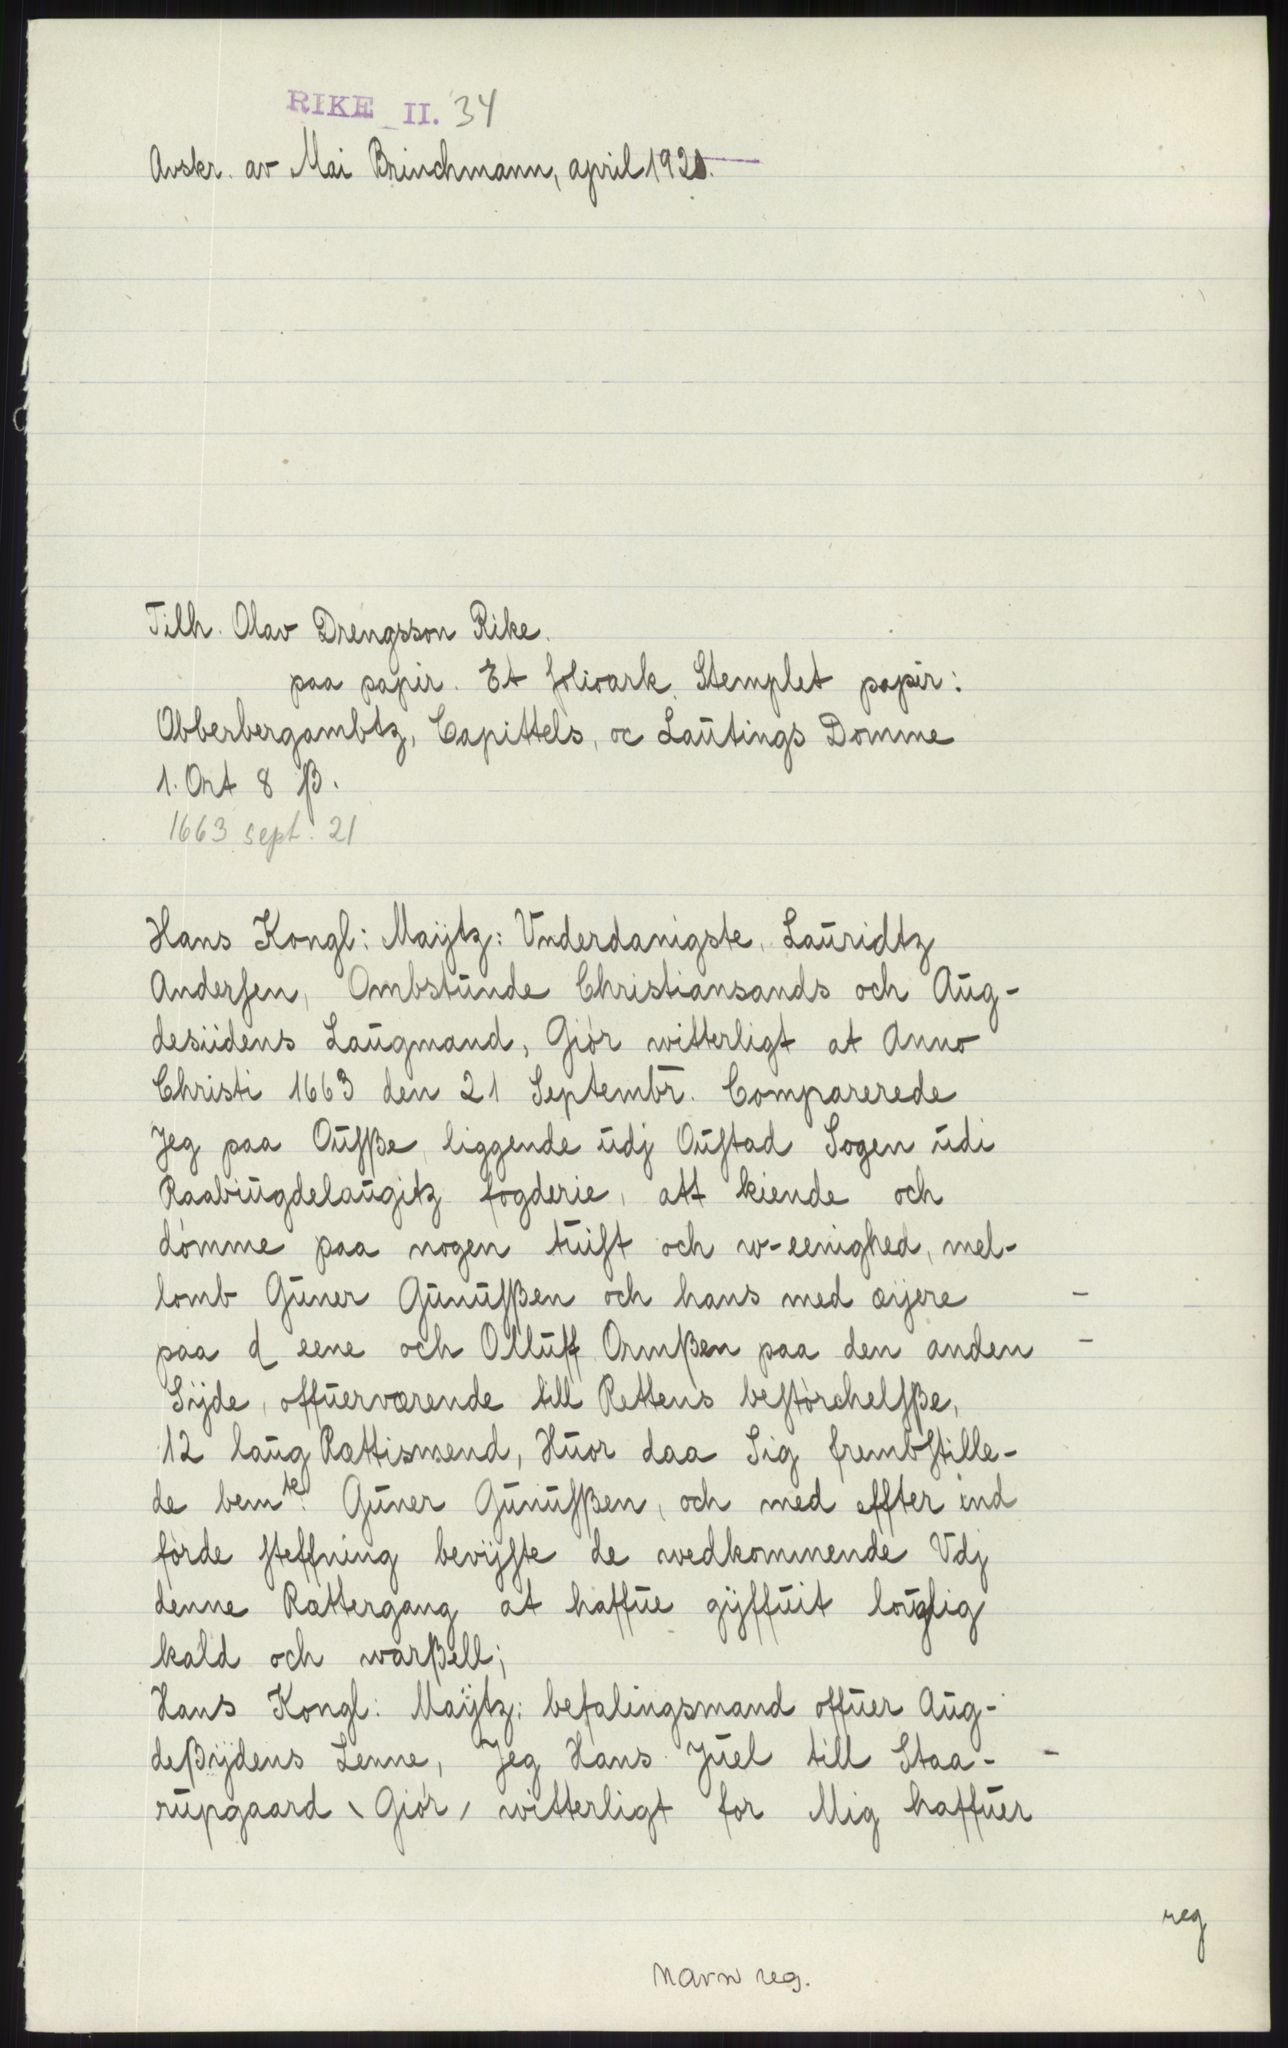 RIKE II. 34
Avskr. av Mai Brinchmann, april 1920.
Tilh. Olav Drengsson Rike.
paa papir. Et folioark. Stemplet papir:
Obberbergambtz, Capittels, oc Laütings Domme
1. Ort 8 β.
1663 sept. 21
Hans Kongl: Maÿtz: Vnderdanigste, Laüridtz
Andersen, Ombstünde Christiansands och Aüg-
desiidens Laügmand, Giör witterligt at Anno
Christi 1663 den 21 Septembr. Comparerede
Jeg paa Oüsße liggende üdj Oüstad Sogen üdi
Raabiügdelaügitz fogderie, att kiende och
dömme paa nogen tüist och w-eenighed, mel-
lomb Güner Günüsßen och hans med æijere -
paa d eene och Olluff Ormßen paa den anden -
Sÿde, offuerværende till Rettens bestörchelsße,
12 laüg Rættismend, Hüor daa Sig frembstille-
de bemte: Güner Günüsßen, och med effter ind
förde steffning bevÿste de wedkommende Vdj
denne Rættergang at haffüe gÿffüit loüglig
kald och warßell;
Hans Kongl: Maÿtz: befalingsmand offuer Aüg-
deßÿdens Lenne, Jeg Hans Jüel till Staa- -
rüpgaard \ Giör / witterligt for Mig haffüer
reg
Navn reg.